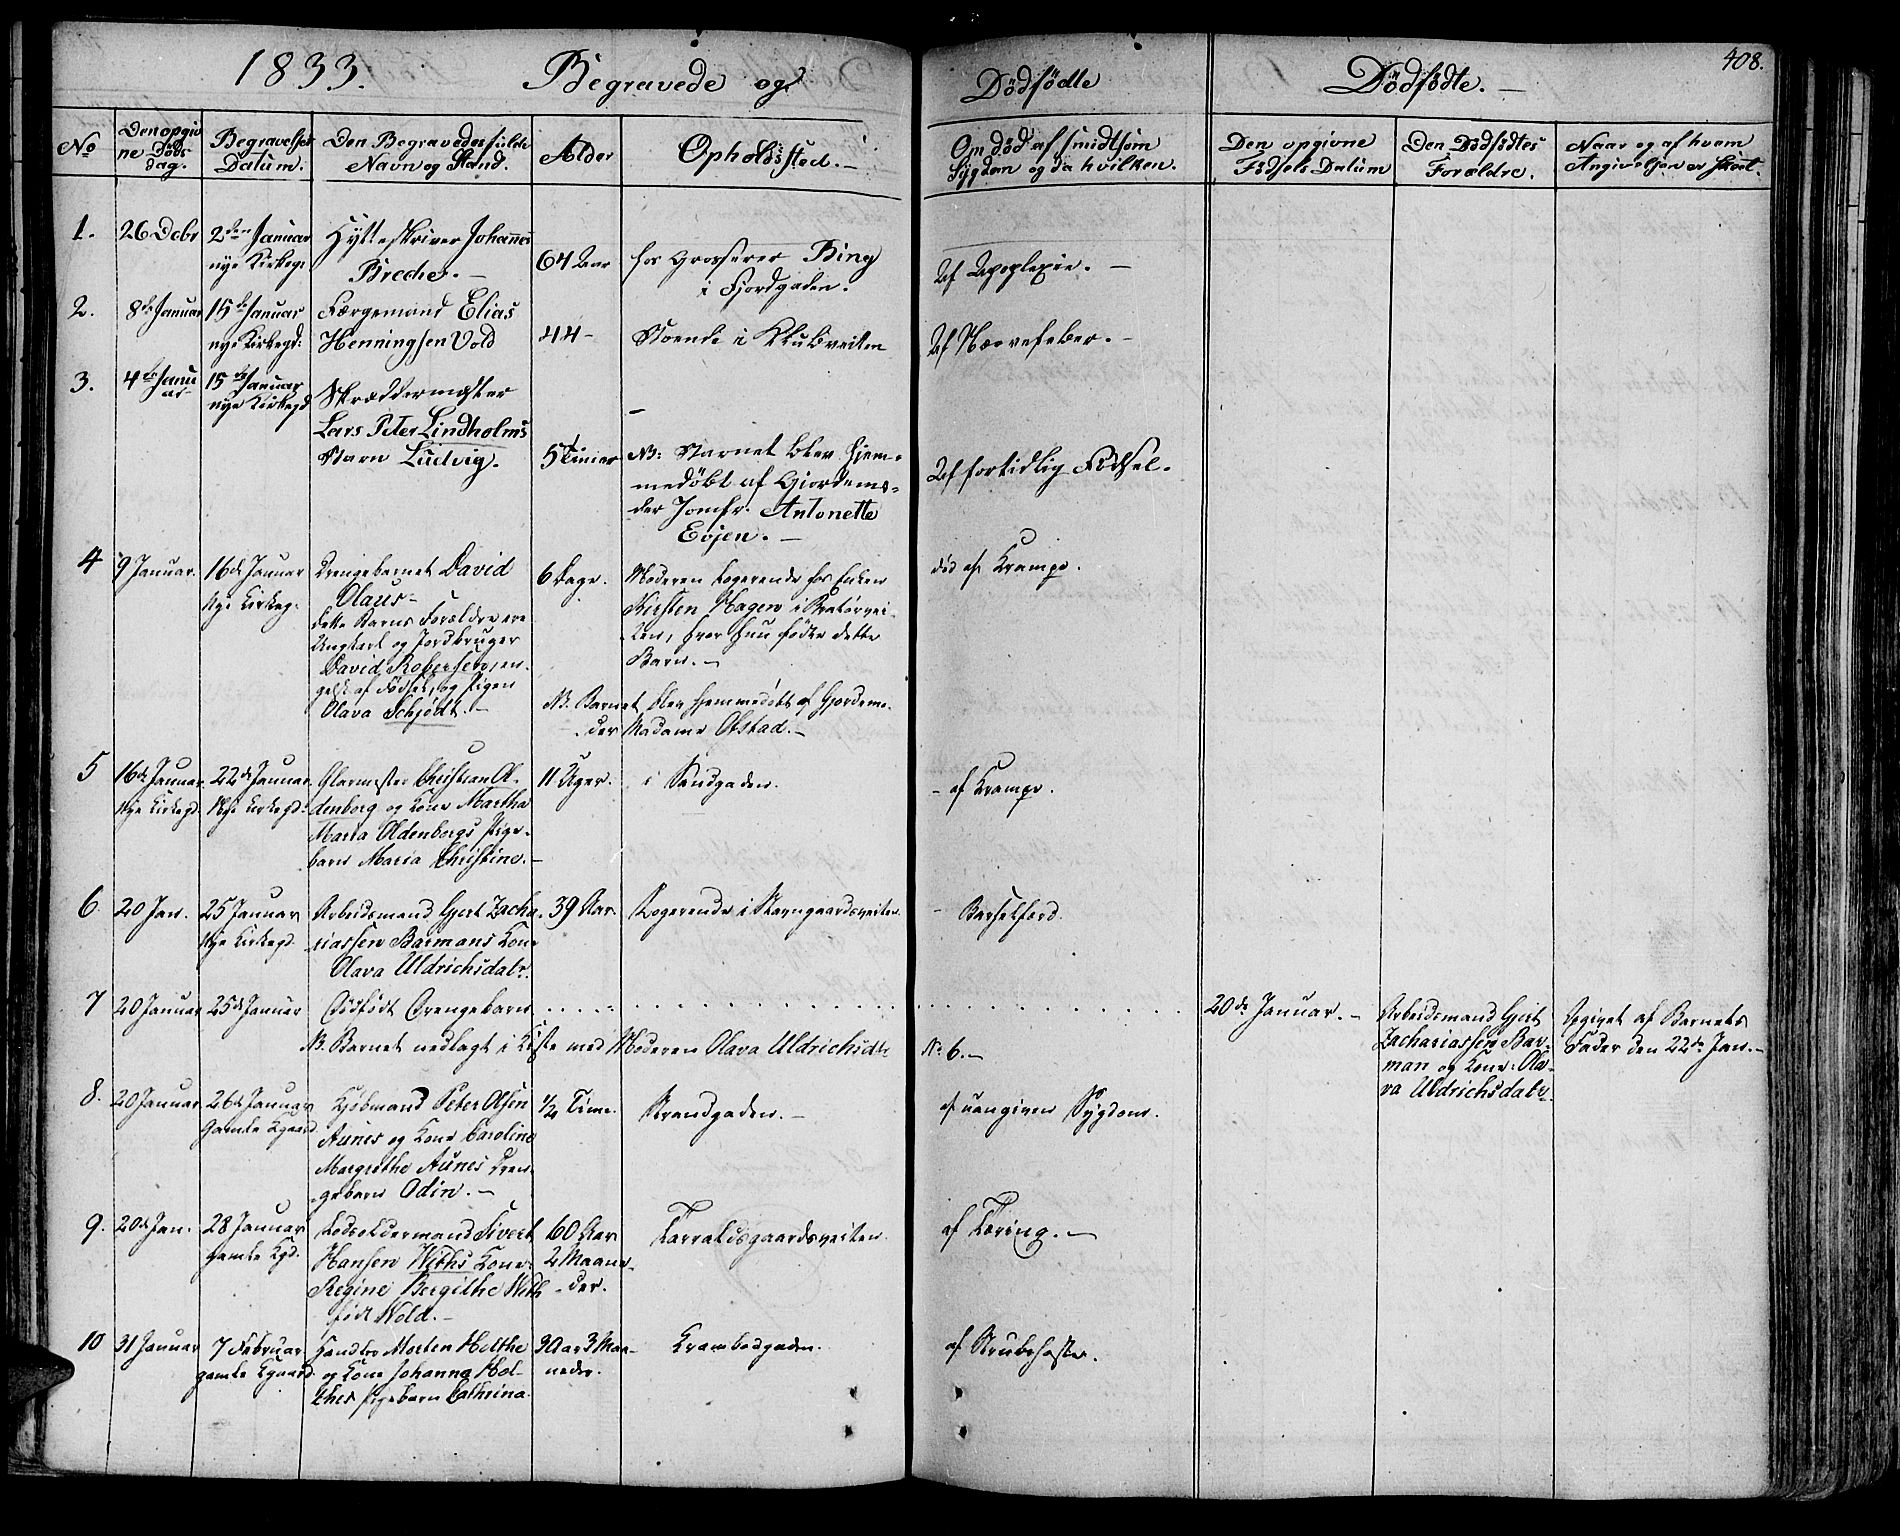 408.
1833. Begravede og Dödfödte Dödfödte.
No
Den opgiv
ne Döds
dag.
Begravelses
Datum.
Den Begravedes fulde
Navn og Stand.
Alder
Opholdssted.
Om död af smidtsom
Sygdom og da hvilken.
Den opgivne
Födsels Datum
Den Dödfödtes
Forældre.
Naar og af hvem
Angivelsen er skeet.
1. 26 Debr
2den Januar
nye Kirkeg:
Hytteskriver Johannes
Breche.
64 Aar
hos Grosserer Bing
i Fjordgaden.
Af Apoplexie.
2. 8de Januar
15de Januar
nye Kirkegd:
Færgemand Elias
Henningsen Vold
44 -
Boende i Klubveiten
Af Nervefeber.
3. 4de Janu
ar
15de Januar
nye Kirkegd
Skræddermester
Lars Peter Lindholms
Barn Ludvig.
5 Timer
NB: Barnet blev hjem-
medöbt af Gjordemo-
der Jomfr. Antonette
Evjen.
Af fortidlig Födsel.
4 9 Januar.
16de Januar
Nye Kirkeg:
Drengebarnet David
Olaus
dette Barns Forældre ere
Ungkarl og Jordbruger
David Robertson, en-
gelsk af Födsel, og Pigen
Olava Schjödt.
6 Dage.
Moderen logerende hos Enken
Kirsten Hagen i Bratörvei-
ten, hvor hun födte dette
Barn.
NB. Barnet blev hjemmedöbt af Gjordemo-
der Madame Olstad.
död af Krampe.
5 16de Januar
Nye Kirkegd.
22de Januar
Nye Kirkegd:
Glarmester Christian Ol-
denborg og Kone Martha
Maria Oldenborgs Pige-
barn Maria Christine.
11 Uger.
i Sandgaden.
- af Krampe.
6 20 Jan.
25 Januar
Nye Kirkegd
Arbeidsmand Gjert Zacha-
riassen Barmans Kone
Olava Uldrichsdatr.
39 Aar.
Logerende i Barngaardsveiten.
- Barselfærd.
7 20 Januar
25de Januar
Dödfödt Drengebarn
NB. Barnet nedlagt i Kiste med Moderen Olava Uldrichsdtr
No 6.
20de Januar.
Arbeidsmand Gjert
Zachariassen Bar-
man og Kone Ola-
va Uldrichsdatr.
Opgivet af Barnets
Fader den 22de Jan.
8. 20 Januar
26de Januar
Gamle Kgaard
Kjöbmand Peter Olsen
Aunes og Kone Caroline
Margrethe Aunes Dren-
gebarn Odin.
1/2 Time.
Strandgaden.
af uangiven Sygdom.
9. 20de Jan.
28 Januar
gamle Kgd.
Lodsoldermand Sivert
Hansen Withs Kone
Regine Bergithe With
föd Wold.
60 Aar
2 Maane-
der.
Harraldsgaardsveiten.
af Tæring.
10 31 Januar
7 Februar
gamle Kgaard
Handlsb Morten Holthe
og Kone Johanna Hol-
thes Pigebarn Cathrina.
3 Aar 3 Maa-
neder.
Krambodgaden.
af Strubehoste.